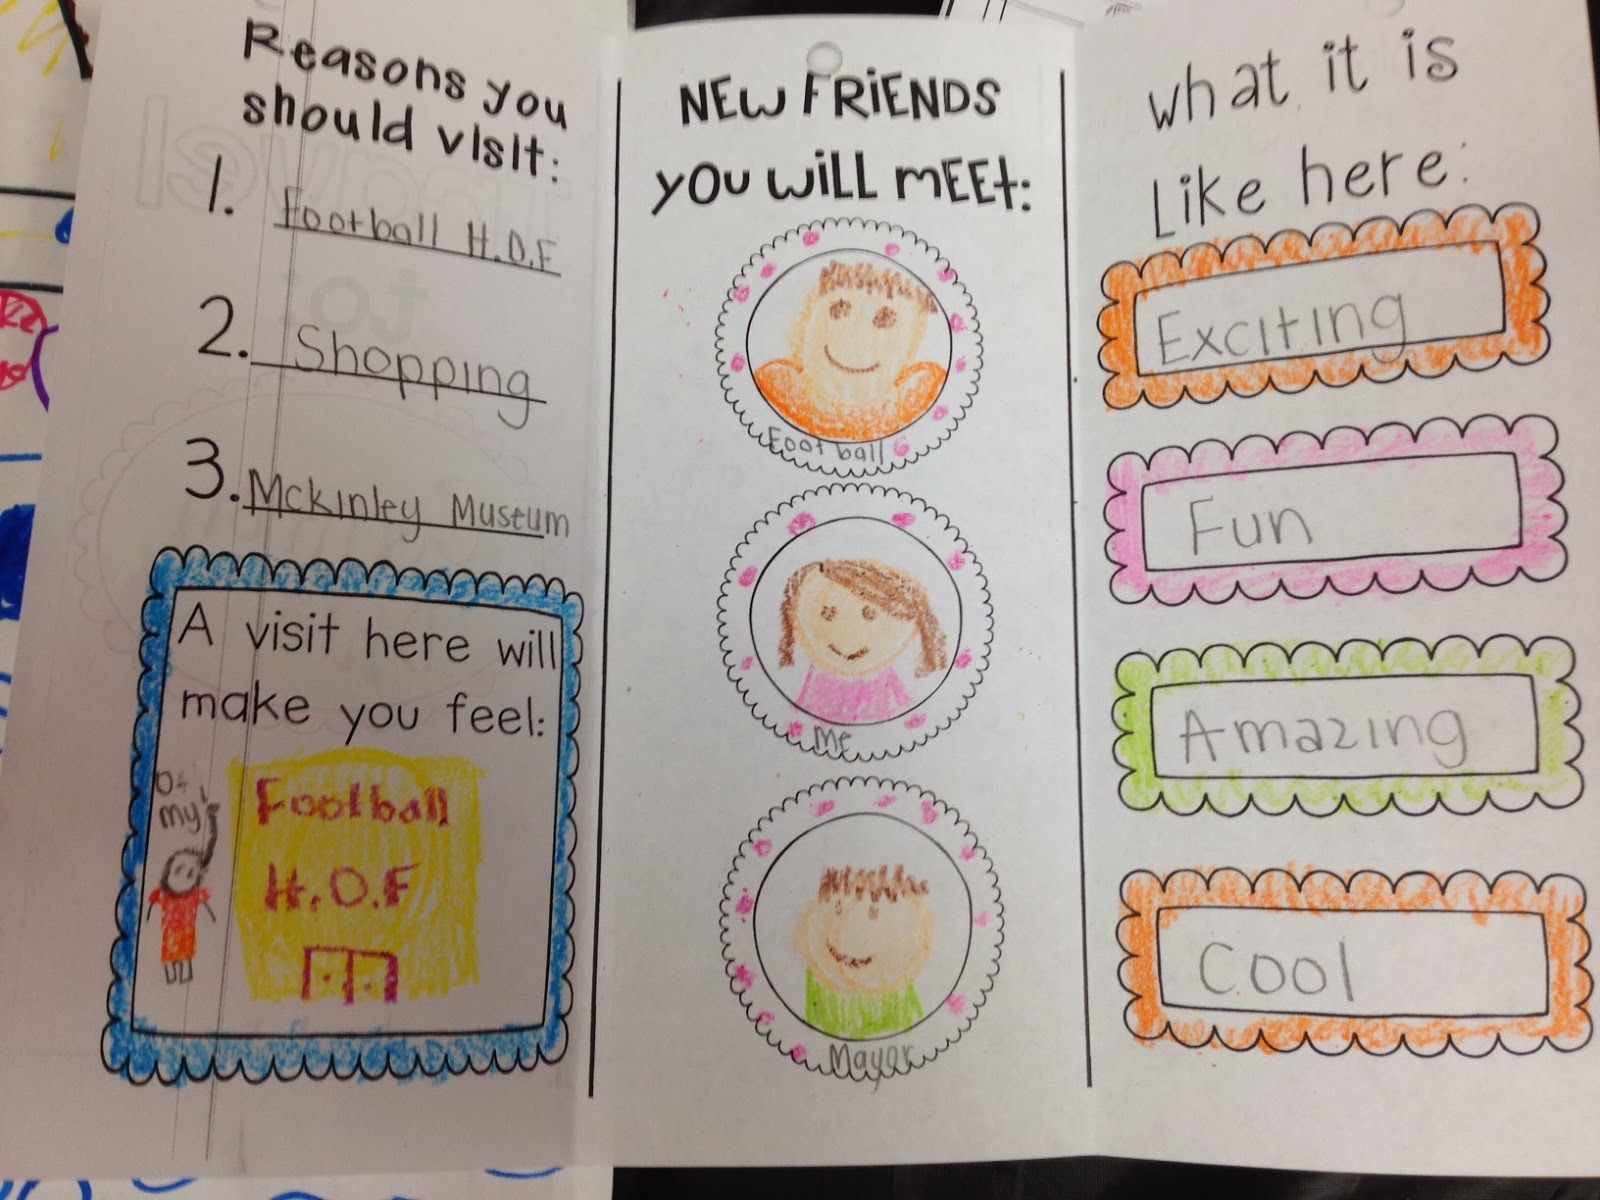 Reasons you
should visit:
1. Football H.O.F
2. Shopping
3. Mckinley Museum
A visit here will
make you feel:
my!
Football
H.O.F
NEW FRIENDS
YOU WILL MEET:
Football
Me
Mayor
what it is
Like here:
Exciting
Fun
Amazing
Cool